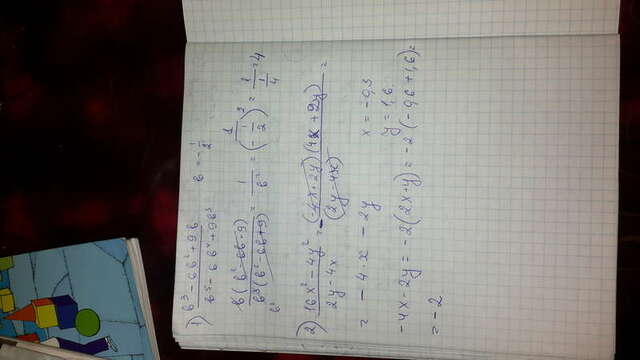 1) (b³ - 6b² + 9b) / (b⁵ - 6b⁴ + 9b³)   b = -1/2
b(b² - 6b + 9) / b³(b² - 6b + 9) = 1/b² = 1/(-1/2)² = 1/(1/4) = 4
2) (16x² - 4y²) / (2y - 4x) = (-4x + 2y)(4x + 2y) / (2y - 4x) =
= -4x - 2y   x = -0,3
y = 1,6
-4x - 2y = -2(2x + y) = -2(-0,6 + 1,6) =
= -2